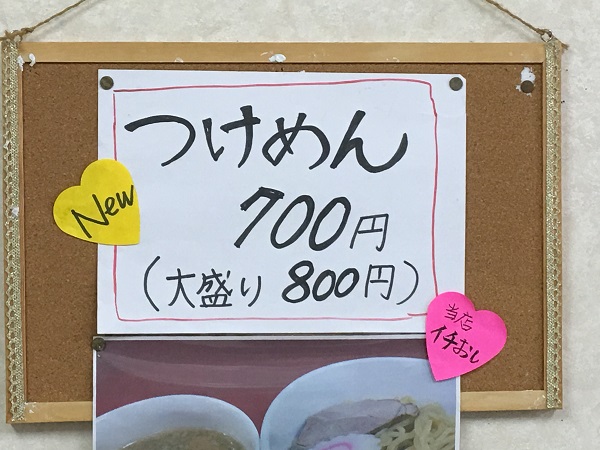 つけめん
New
700円
(大盛り 800円)
当店
イチおし